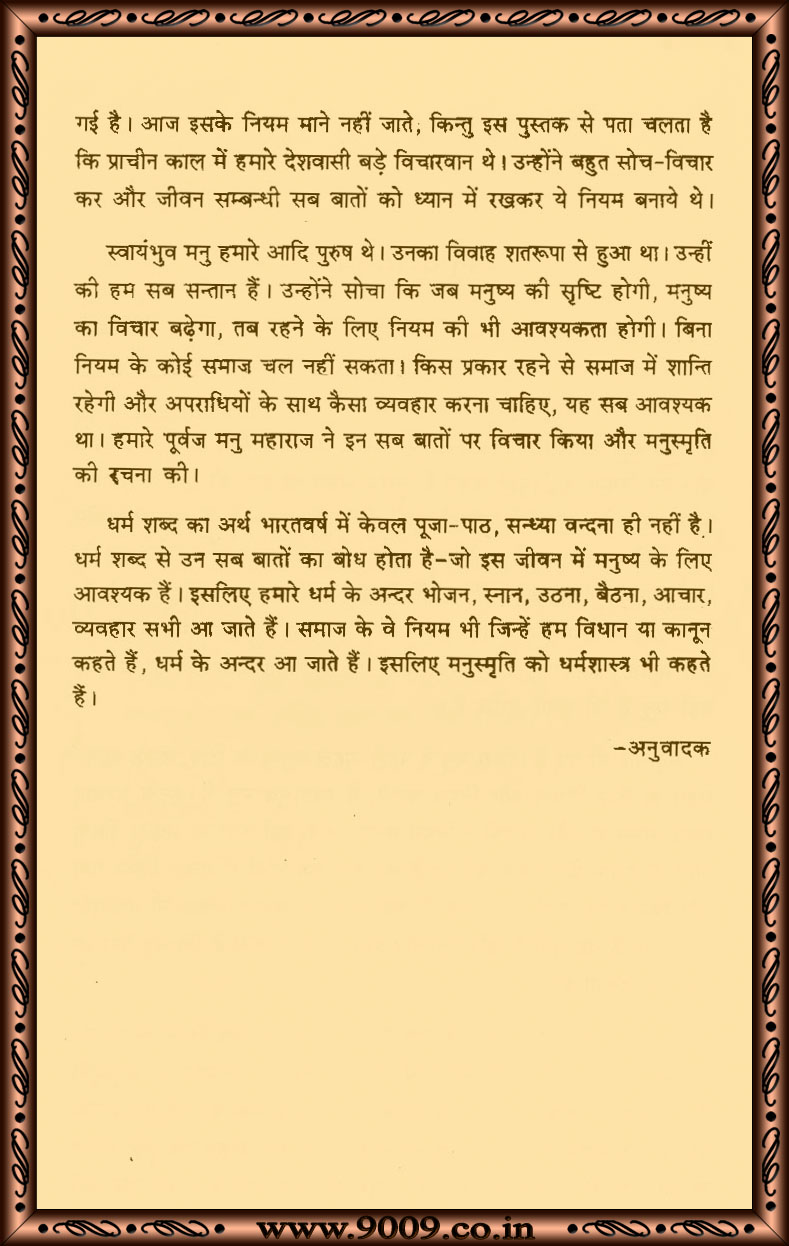 गई है। आज इसके नियम माने नहीं जाते, किन्तु इस पुस्तक से पता चलता है
कि प्राचीन काल में हमारे देशवासी बड़े विचारवान थे। उन्होंने बहुत सोच-विचार
कर और जीवन सम्बन्धी सब बातों को ध्यान में रखकर ये नियम बनाये थे।
स्वायंभुव मनु हमारे आदि पुरुष थे। उनका विवाह शतरूपा से हुआ था। उन्हीं
की हम सब सन्तान हैं। उन्होंने सोचा कि जब मनुष्य की सृष्टि होगी, मनुष्य
का विचार बढ़ेगा, तब रहने के लिए नियम की भी आवश्यकता होगी। बिना
नियम के कोई समाज चल नहीं सकता। किस प्रकार रहने से समाज में शान्ति
रहेगी और अपराधियों के साथ कैसा व्यवहार करना चाहिए, यह सब आवश्यक
था। हमारे पूर्वज मनु महाराज ने इन सब बातों पर विचार किया और मनुस्मृति
की रचना की।
धर्म शब्द का अर्थ भारतवर्ष में केवल पूजा-पाठ, सन्ध्या वन्दना ही नहीं है।
धर्म शब्द से उन सब बातों का बोध होता है-जो इस जीवन में मनुष्य के लिए
आवश्यक हैं। इसलिए हमारे धर्म के अन्दर भोजन, स्नान, उठना, बैठना, आचार,
व्यवहार सभी आ जाते हैं। समाज के वे नियम भी जिन्हें हम विधान या कानून
कहते हैं, धर्म के अन्दर आ जाते हैं। इसलिए मनुस्मृति को धर्मशास्त्र भी कहते
हैं।
-अनुवादक
www.9009.co.in